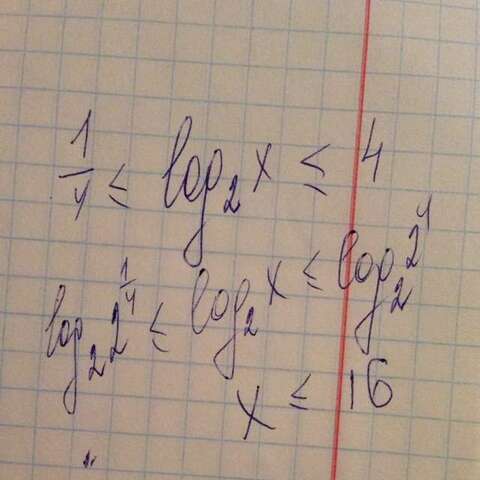 1/4 ≤ log₂ x ≤ 4
log₂ 2^(1/4) ≤ log₂ x ≤ log₂ 2⁴
x ≤ 16